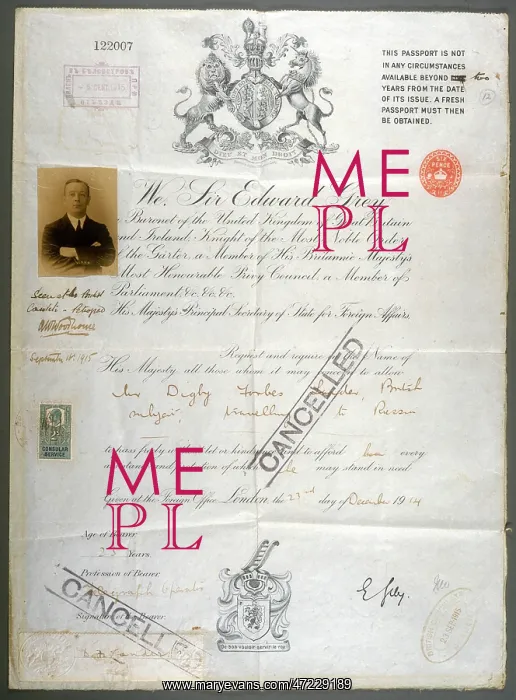 122007
THIS PASSPORT IS NOT
IN ANY CIRCUMSTANCES
AVAILABLE BEYOND two
YEARS FROM THE DATE
OF ITS ISSUE. A FRESH
PASSPORT MUST THEN
BE OBTAINED.
12
DIEU ET MON DROIT
SIX
PENCE
ME
PL
We, Sir Edward Grey
a Baronet of the United Kingdom of Great Britain
and Ireland, Knight of the Most Noble Order
of the Garter, a Member of His Britannic Majesty's
Most Honourable Privy Council, a Member of
Parliament, &c. &c. &c.
His Majesty's Principal Secretary of State for Foreign Affairs,
Seen at the British
Consulate - Petrograd
September 1915
Request and require in the Name of
His Majesty, all those whom it may concern to allow
Mr Digby Forbes British
subject, travelling to Russia
CANCELLED
CONSULAR
SERVICE
to pass freely without let or hindrance and to afford him every
assistance and protection of which he may stand in need
ME
PL
Given at the Foreign Office London, the 23rd day of December 1914
Age of Bearer
23 Years.
Profession of Bearer
Telegraph Operator
Signature of Bearer
CANCELLED
E Grey.
www.maryevans.com/47229189